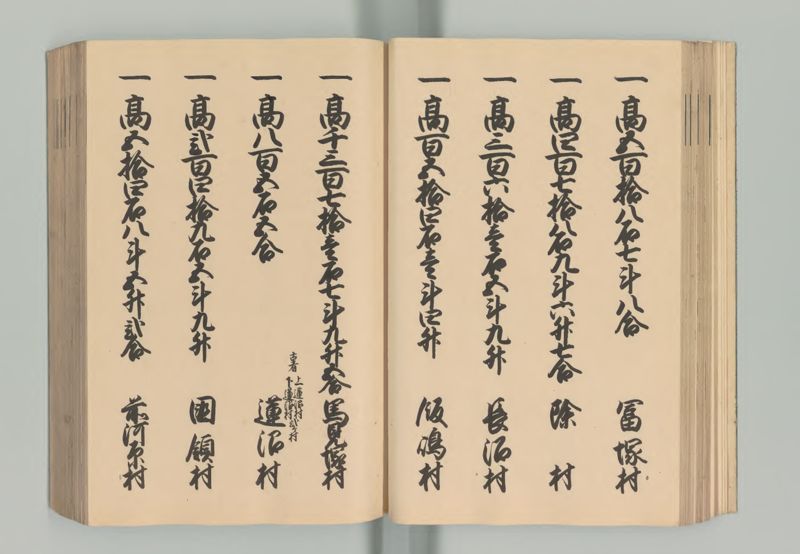 一高五百拾八石七斗八合 冨塚村
一高四百七拾八石九斗六升七合 除村
一高三百六拾壱石五斗九升 長沼村
一高百五拾四石壱斗四升 飯嶋村
一高千三百七拾壱石七斗九升五合 馬見塚村
一高八百五石五合 蓮沼村
古者 上蓮沼村
下蓮沼村 弐ケ村
一高弐百四拾九石五斗九升 国領村
一高五拾四石八斗五升弐合 前河原村